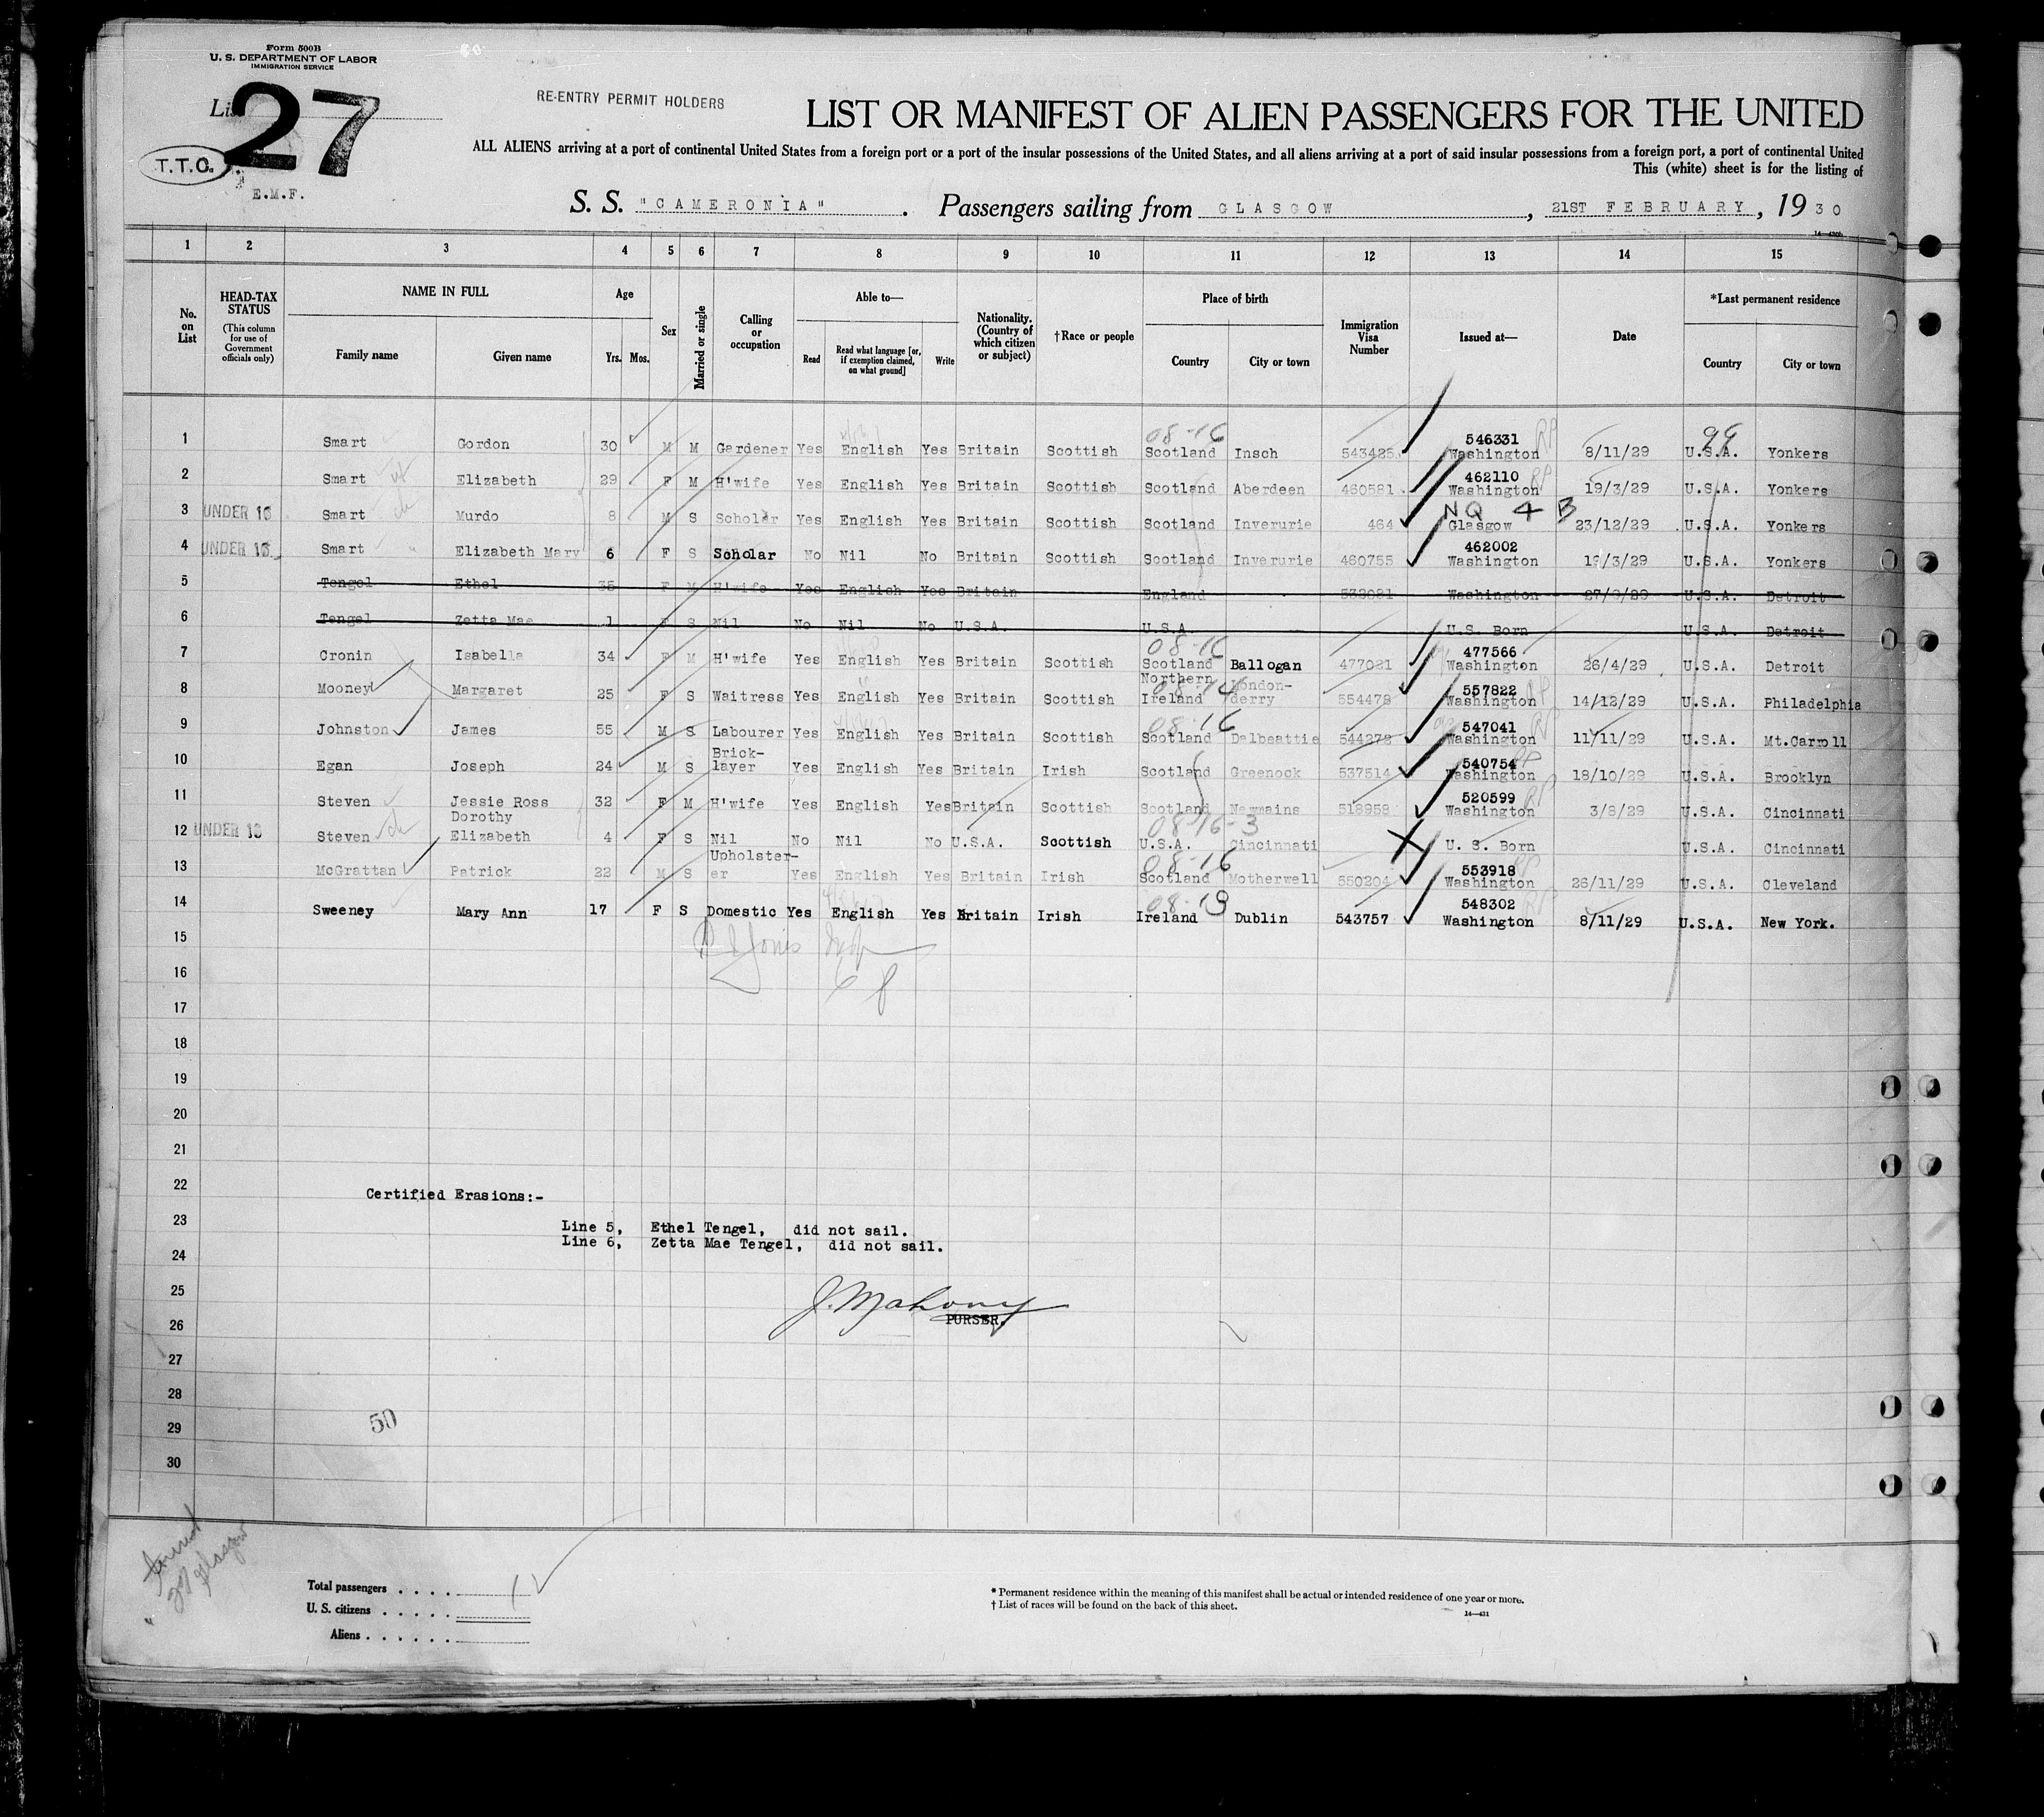 Form 500B
U. S. DEPARTMENT OF LABOR
IMMIGRATION SERVICE
List 27
T.T.O.
E.M.F.
RE-ENTRY PERMIT HOLDERS
LIST OR MANIFEST OF ALIEN PASSENGERS FOR THE UNITED
ALL ALIENS arriving at a port of continental United States from a foreign port or a port of the insular possessions of the United States, and all aliens arriving at a port of said insular possessions from a foreign port, a port of continental United
This (white) sheet is for the listing of
S. S. "CAMERONIA". Passengers sailing from GLASGOW, 21ST FEBRUARY, 1930
1 2 3 4 5 6 7 8 9 10 11 12 13 14 15
No. on List
HEAD-TAX STATUS (This column for use of Government officials only)
NAME IN FULL
Family name Given name
Age
Yrs. Mos.
Sex
Married or single
Calling or occupation
Able to—
Read
Read what language [or, if exemption claimed, on what ground]
Write
Nationality. (Country of which citizen or subject)
†Race or people
Place of birth
Country City or town
Immigration Visa Number
Issued at—
Date
*Last permanent residence
Country City or town
1 Smart Gordon 30 M M Gardener Yes English Yes Britain Scottish 08-16 Scotland Insch 543425 546331 Washington RP 8/11/29 99 U.S.A. Yonkers
2 Smart Elizabeth 29 F M H'wife Yes English Yes Britain Scottish Scotland Aberdeen 460581 462110 Washington RP 19/3/29 U.S.A. Yonkers
3 UNDER 16 Smart Murdo 8 M S Scholar Yes English Yes Britain Scottish Scotland Inverurie 464 NQ 4 B Glasgow 23/12/29 U.S.A. Yonkers
4 UNDER 16 Smart Elizabeth Mary 6 F S Scholar No Nil No Britain Scottish Scotland Inverurie 460755 462002 Washington 19/3/29 U.S.A. Yonkers
5 Tengel Ethel 35 F M H'wife Yes English Yes Britain England Washington U.S.A. Detroit
6 Tengel Zetta Mae 1 F S Nil No Nil No U.S.A. U.S.A. U.S. Born U.S.A. Detroit
7 Cronin Isabella 34 F M H'wife Yes English Yes Britain Scottish 08-16 Scotland Ballogan 477081 477566 Washington 26/4/29 U.S.A. Detroit
8 Mooney Margaret 25 F S Waitress Yes English Yes Britain Scottish Northern Ireland 08-14 London-derry 554478 557822 Washington RP 14/12/29 U.S.A. Philadelphia
9 Johnston James 55 M S Labourer Yes English Yes Britain Scottish 08-16 Scotland Dalbeattie 544278 547041 Washington RP 11/11/29 U.S.A. Mt.Carroll
10 Egan Joseph 24 M S Brick-layer Yes English Yes Britain Irish Scotland Greenock 537514 540754 Washington RP 18/10/29 U.S.A. Brooklyn
11 Steven Jessie Ross 32 F M H'wife Yes English Yes Britain Scottish Scotland Newmains 518958 520599 Washington RP 3/8/29 U.S.A. Cincinnati
12 UNDER 16 Steven Dorothy Elizabeth 4 F S Nil No Nil No U.S.A. Scottish 08-16-3 U.S.A. Cincinnati U. S. Born U.S.A. Cincinnati
13 McGrattan Patrick 22 M S Upholster-er Yes English Yes Britain Irish 08-16 Scotland Motherwell 550204 553918 Washington RP 26/11/29 U.S.A. Cleveland
14 Sweeney Mary Ann 17 F S Domestic Yes English Yes Britain Irish 08-13 Ireland Dublin 543757 548302 Washington RP 8/11/29 U.S.A. New York.
15
16
17
18
19
20
21
22 Certified Erasions:-
23 Line 5, Ethel Tengel, did not sail.
Line 6, Zetta Mae Tengel, did not sail.
24
25 J. Mahony
26 PURSER.
27
28
29 50
30
Glasgow
Total passengers . . . .
U. S. citizens . . . . .
Aliens . . . . . .
* Permanent residence within the meaning of this manifest shall be actual or intended residence of one year or more.
† List of races will be found on the back of this sheet.
14—431